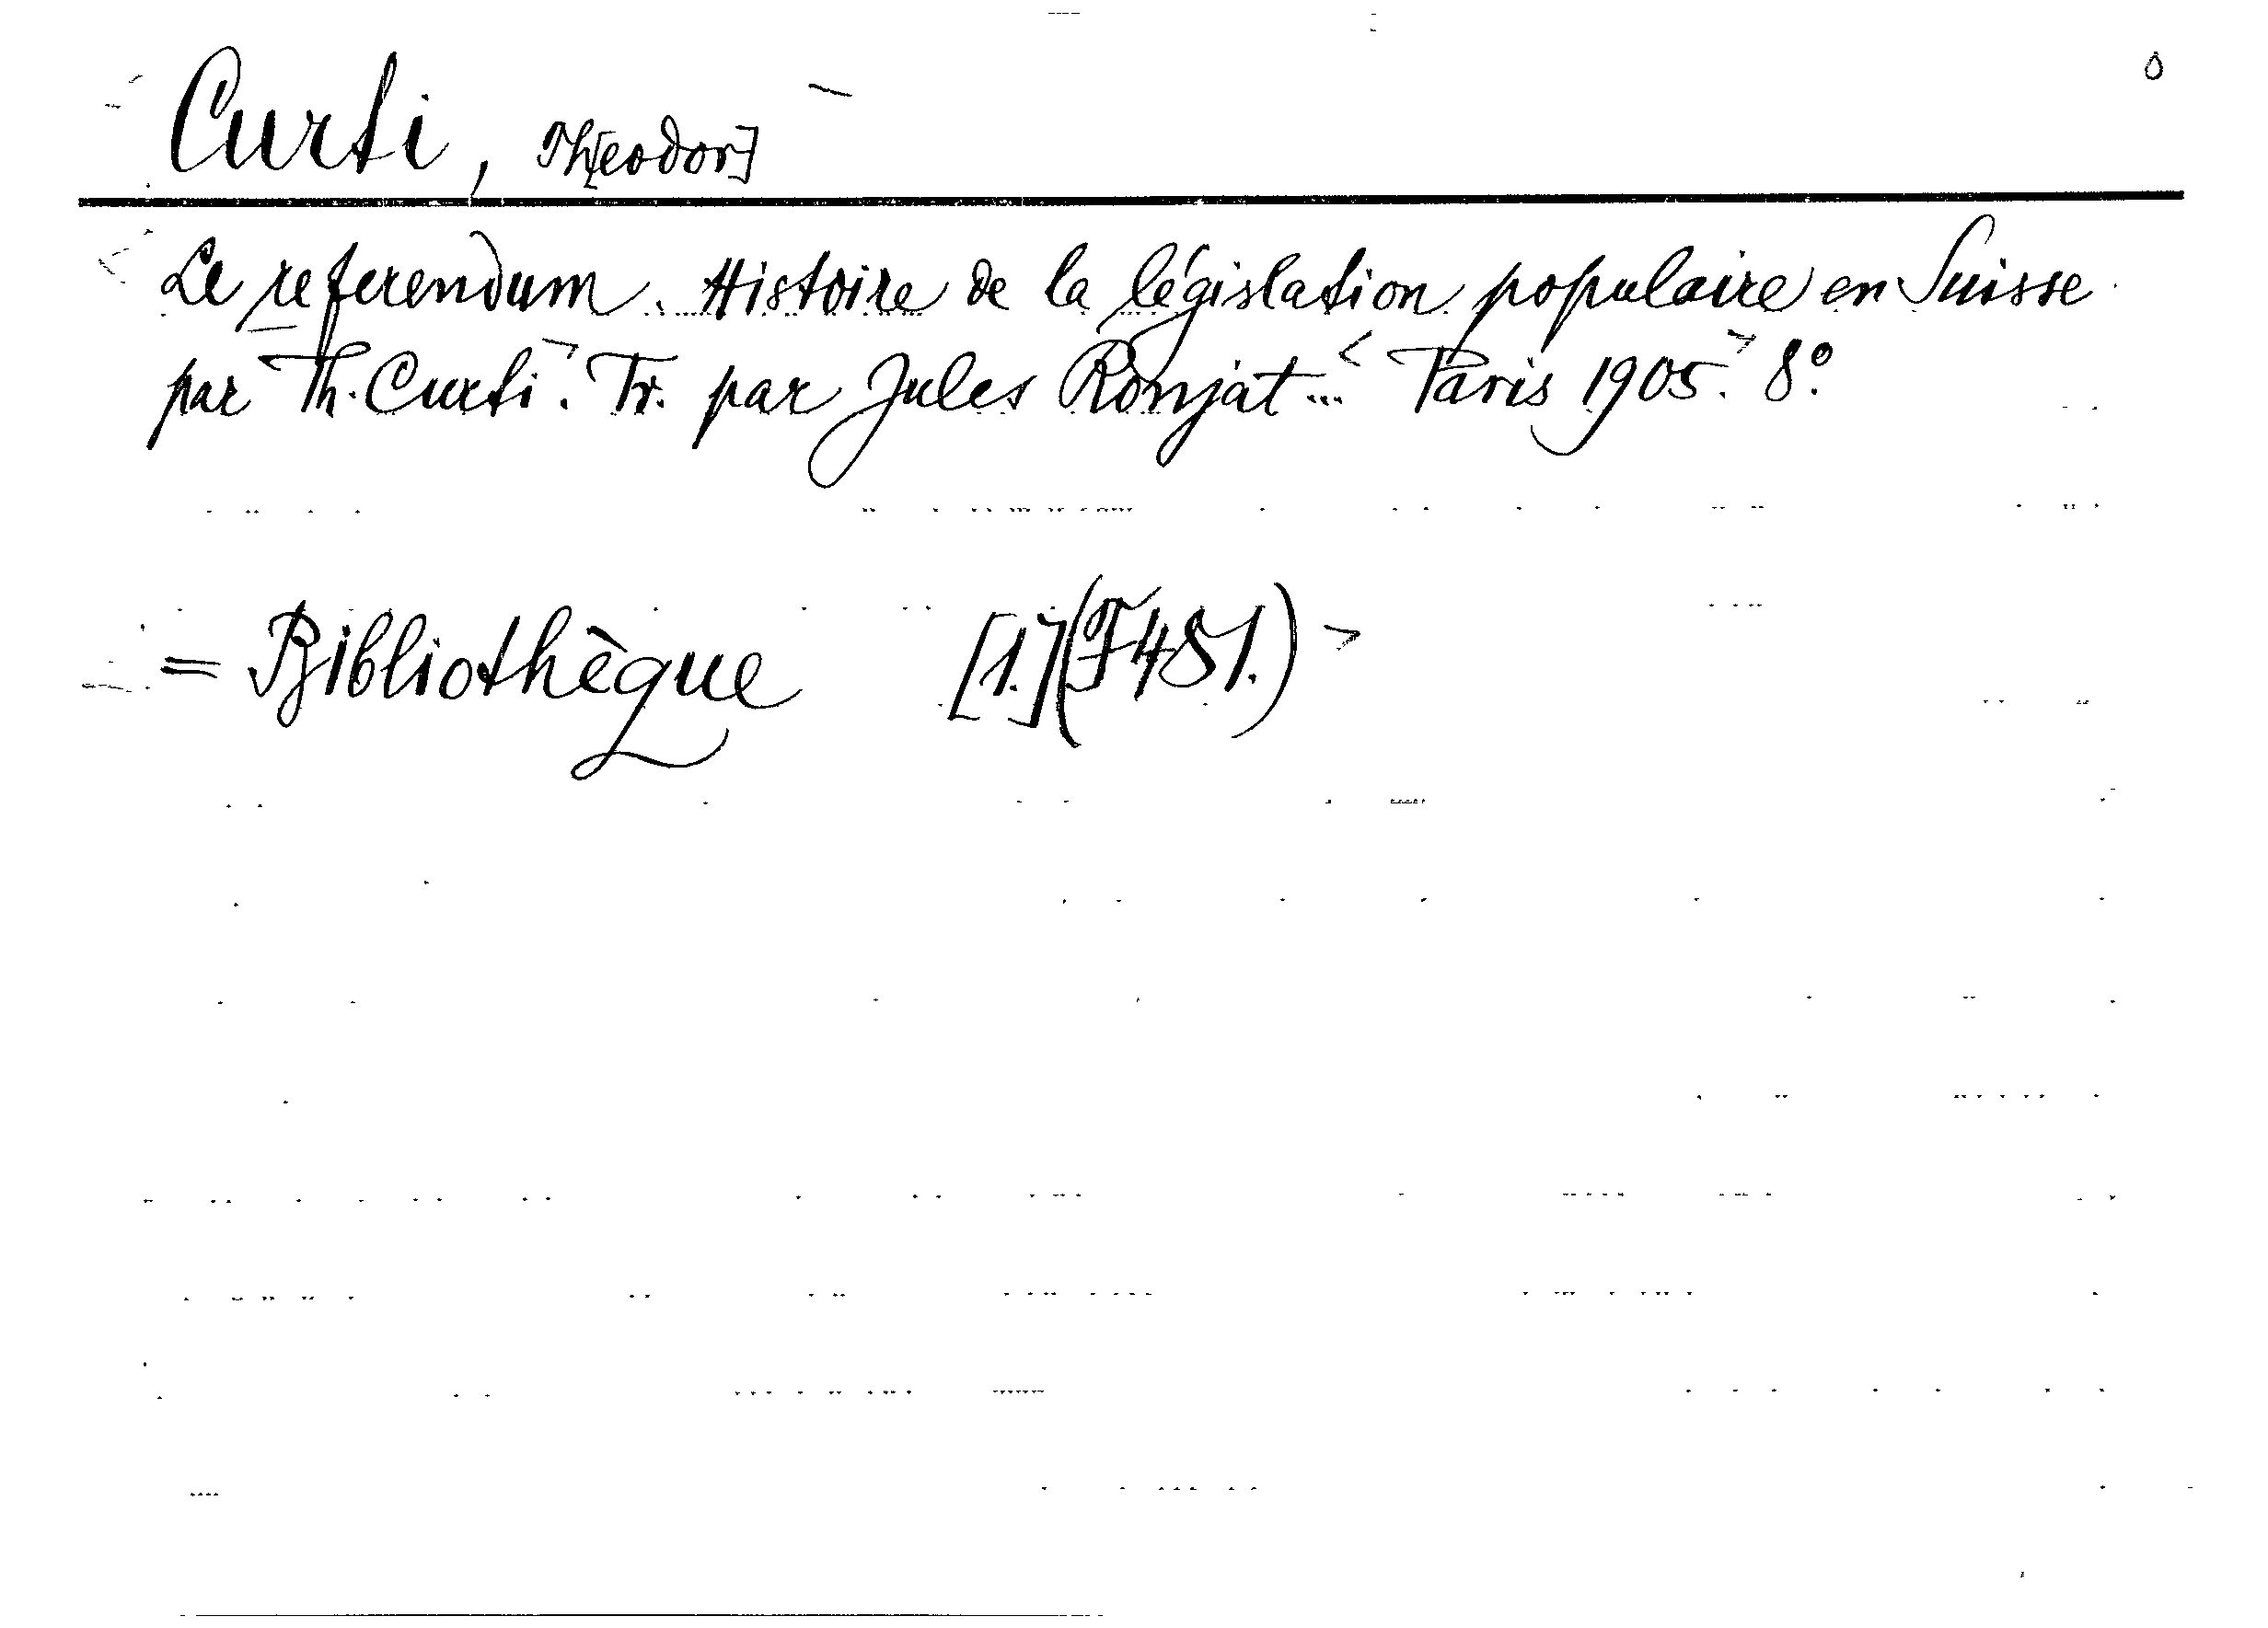 Curti, Th[eodor]
Le referendum. Histoire de la législation populaire en Suisse
par Th. Curti. Tr. par Jules Ronjat... Paris 1905. 8°.
= Bibliothèque [1.] (F 481.)